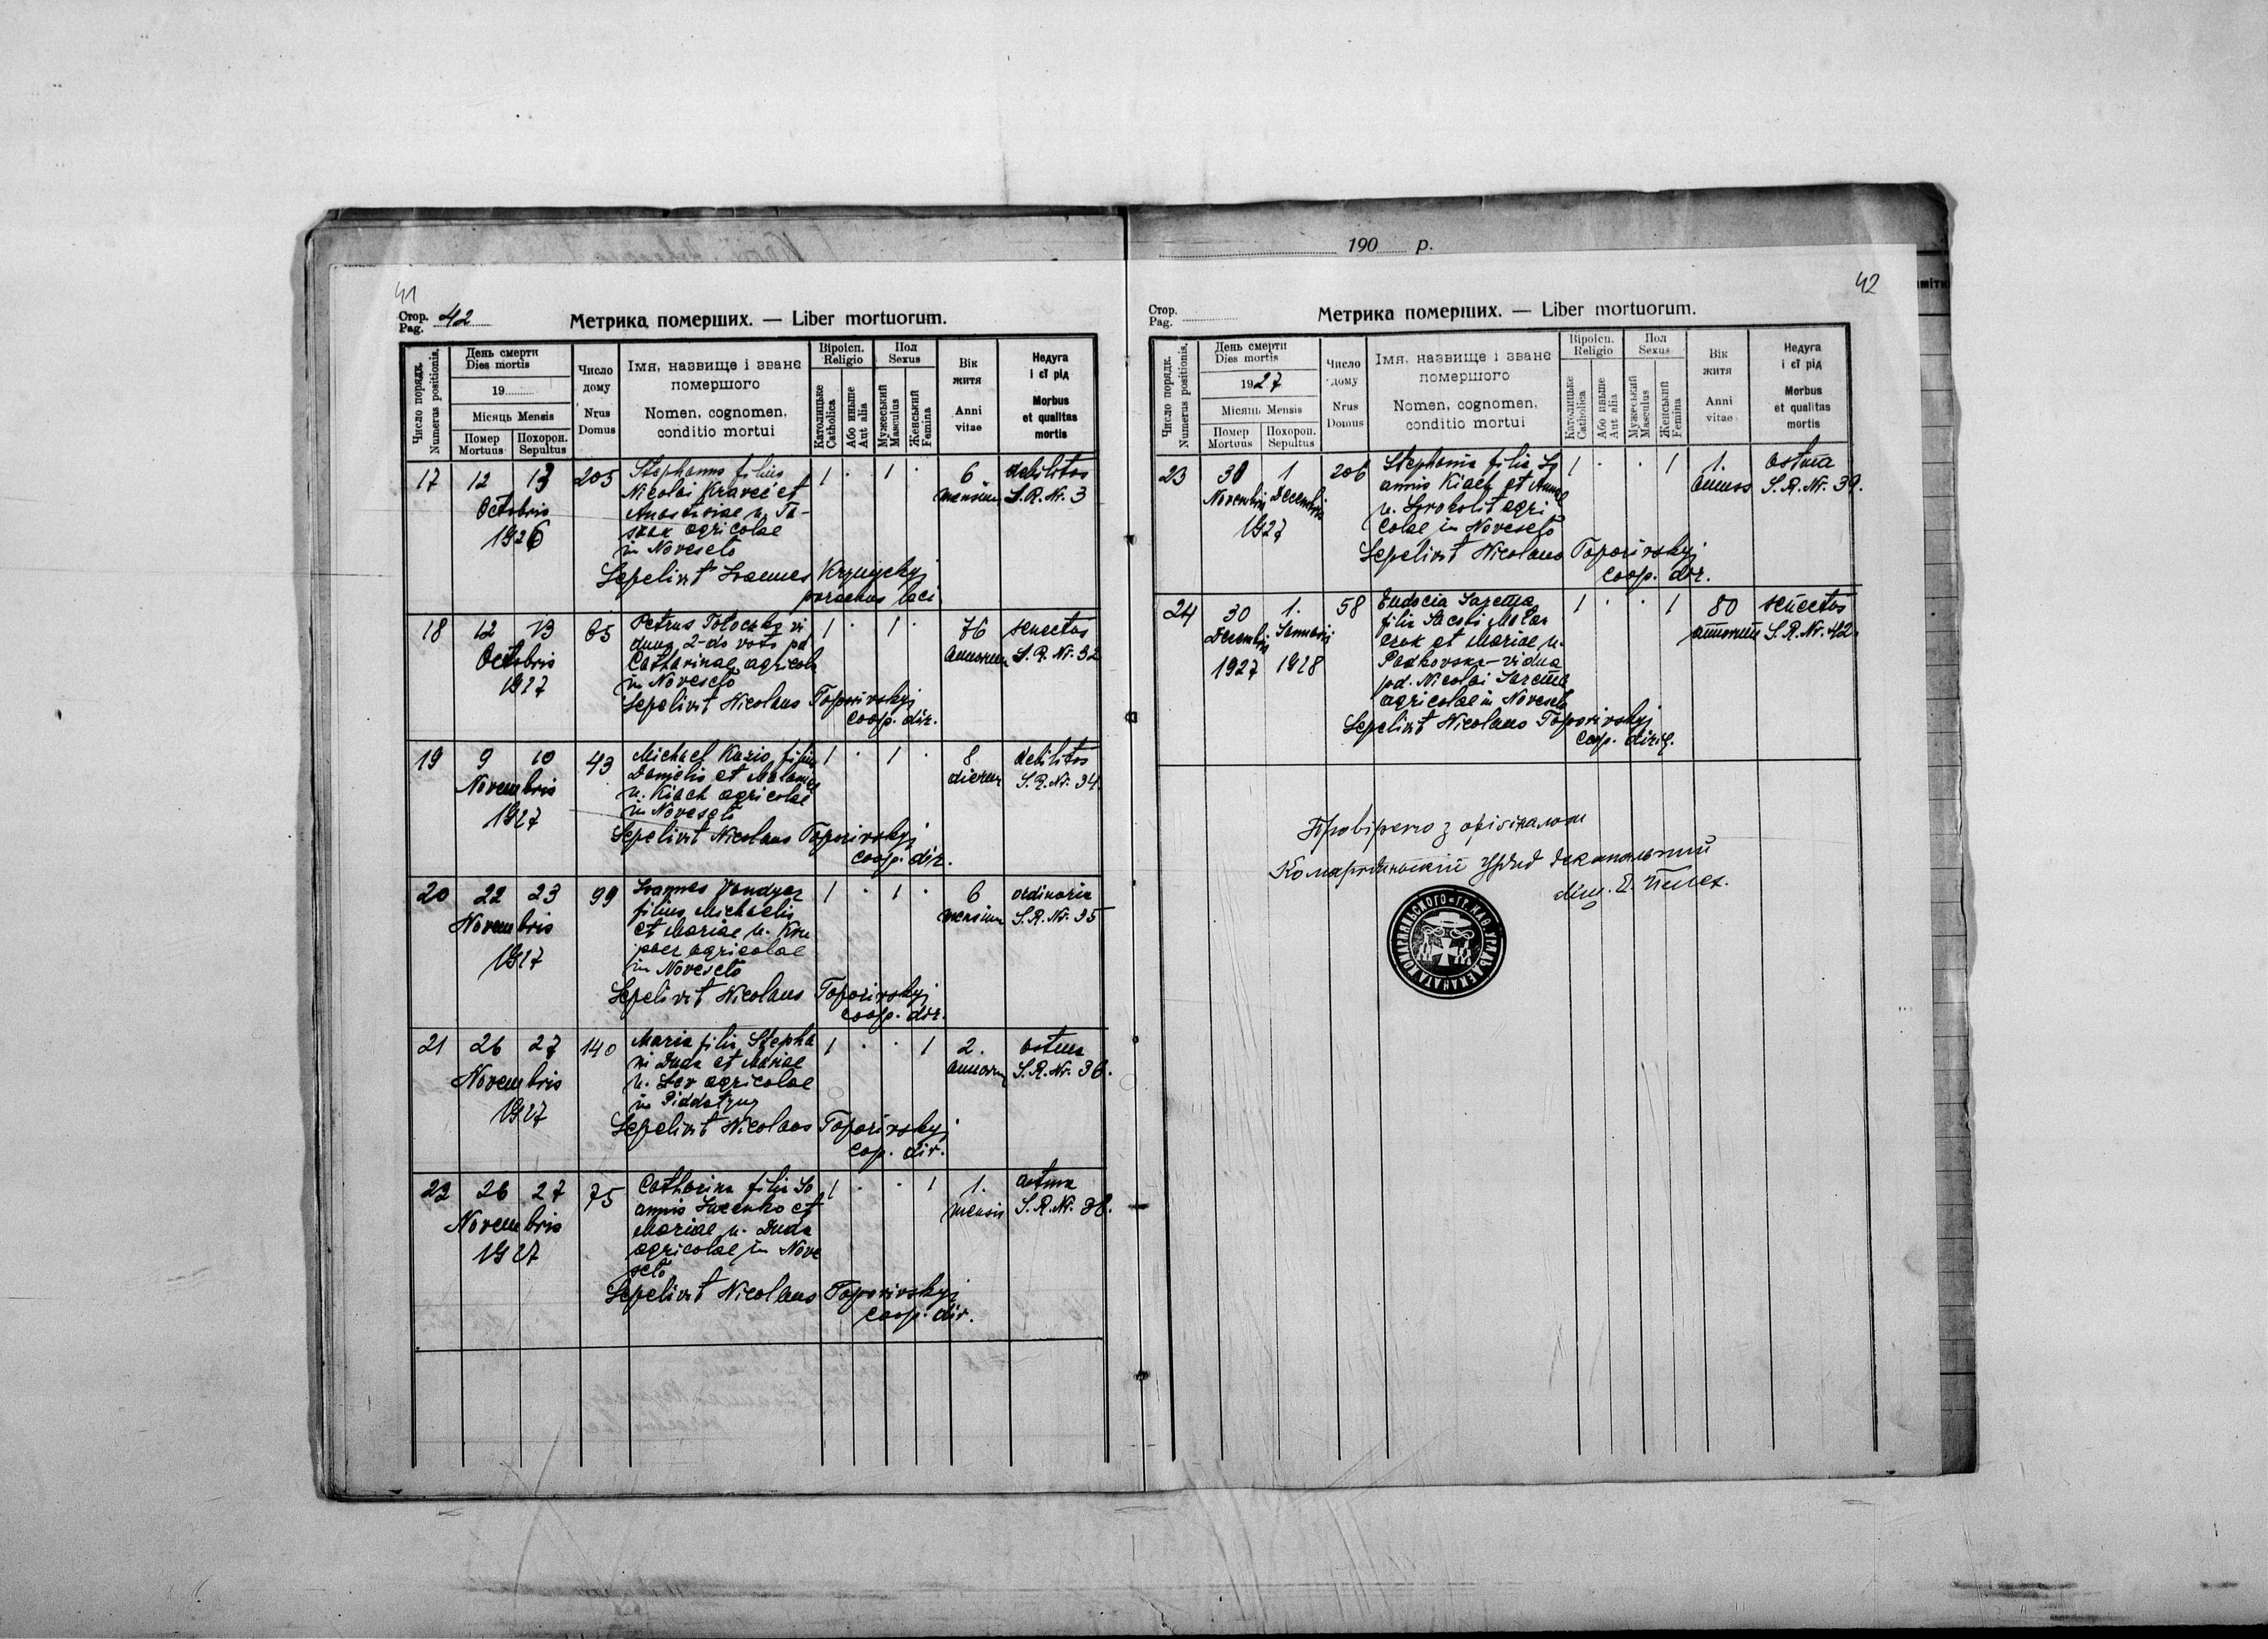 190 р.
41
Стор.
Pag. 42
Метрика померших. — Liber mortuorum.
Число порядк.
Numerus positionis.
День смерти
Dies mortis
19
Місяць Mensis
Помер
Mortuus
Похорон.
Sepultus
Число
дому
Nrus
Domus
Імя, назвище і званє
помершого
Nomen, cognomen,
conditio mortui
Віроісп.
Religio
Католицьке
Catholica
Або иньше
Aut alia
Пол
Sexus
Мужеський
Masculus
Женський
Femina
Вік
житя
Anni
vitae
Недуга
і єї рід
Morbus
et qualitas
mortis
17 12 13 205 Stephanus filius 1 · 1 · 6 debilitas
Nicolai Kraveć et mensium S. R. Nr. 3
Octobris Anastasiae n. Ta-
1926 agricolae
in Noveseło
Sepelivit Ioannes Krynyckyj
parochus loci
18 12 13 65 Petrus Tołoczko vi 1 · 1 · 76 senectus
duus 2-do voto pd annorum S. R. Nr. 32
Octobris Catharinae agricola
1927 in Noveseło
Sepelivit Nicolaus Toporivskyj
coop. dir.
19 9 10 43 Michael Kuzio filius 1 · 1 · 8 debilitas
Danielis et dierum S. R. Nr. 34.
Novembris n. Kiach agricolae
1927 in Noveseło
Sepelivit Nicolaus Toporivskyj
coop. dir.
20 22 23 99 Ioannes 1 · 1 · 6 ordinaria
filius Michaelis mensium S. R. Nr. 35
Novembris et Mariae n.
1927 agricolae
in Noveseło
Sepelivit Nicolaus Toporivskyj
coop. dir.
21 26 27 140 Maria filia Stepha 1 · · 1 2. astma
ni Duda et Mariae annorum S. R. Nr. 36.
Novembris n. agricolae
1927 in
Sepelivit Nicolaus Toporivskyj
cop. dir.
22 26 27 75 Catharina filia Io 1 · · 1 1. astma
annis et mensis S. R. Nr. 38.
Novembris Mariae n. Duda
1927 agricolae in Nove
seło
Sepelivit Nicolaus Toporivskyj
coop. dir.
42
Стор.
Pag.
Метрика померших. — Liber mortuorum.
Число порядк.
Numerus positionis.
День смерти
Dies mortis
1927
Місяць Mensis
Помер
Mortuus
Похорон.
Sepultus
Число
дому
Nrus
Domus
Імя, назвище і званє
помершого
Nomen, cognomen,
conditio mortui
Віроісп.
Religio
Католицьке
Catholica
Або иньше
Aut alia
Пол
Sexus
Мужеський
Masculus
Женський
Femina
Вік
житя
Anni
vitae
Недуга
і єї рід
Morbus
et qualitas
mortis
23 30 1 206 Stephania filia Io 1 · · 1 1. astma
Novembris Decembris annis Kiach et Annae annos S. R. Nr. 39.
1927 n. agri
colae in Noveseło
Sepelivit Nicolaus Toporivskyj
coop. dir.
24 30 1. 58 Eudocia 1 · · 1 80 senectus
Decembris Januarii filia annorum S. R. Nr. 42.
et Mariae n.
1927 1928 vidua
pd. Nicolai
agricolae in Noveseło
Sepelivit Nicolaus Toporivskyj
coop. dirig.
Провірено з оригіналом
Комарнянський Уряд деканальний